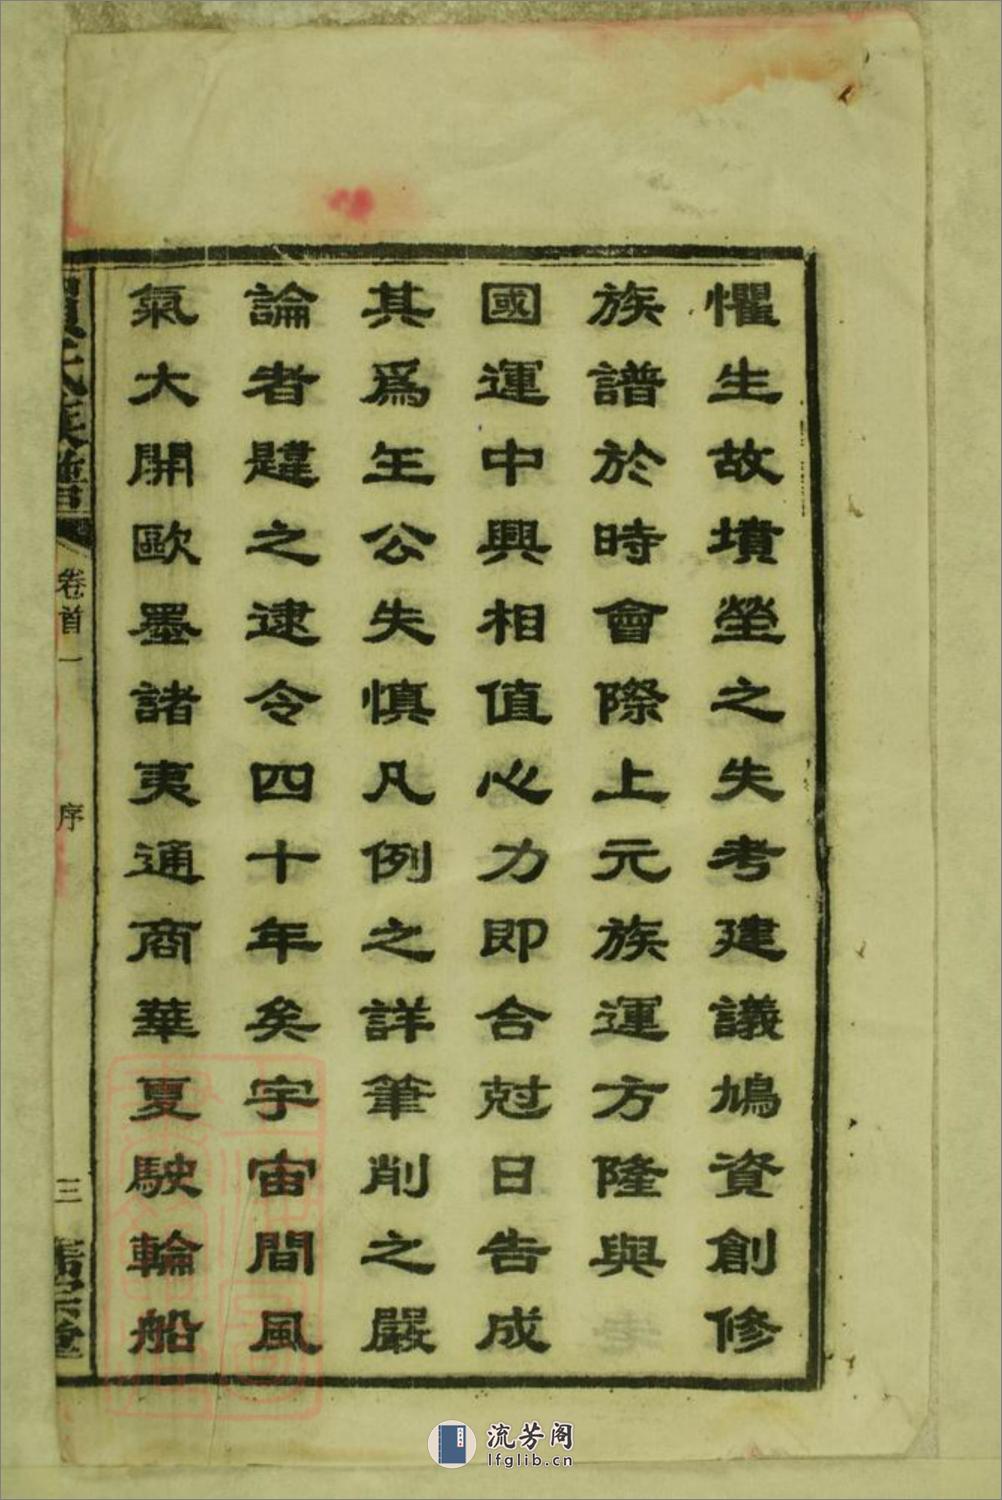 懼生故墳塋之失考建議鳩資創修
族譜於時會際上元族運方隆與
國運中興相值心力即合尅日告成
其為王公失慎凡例之詳筆削之嚴
論者韙之逮令四十年矣宇宙間風
氣大開歐墨諸夷通商華夏駛輪船
氏族譜
卷首一
序
三
宗堂
流芳阁
lfglib.cn